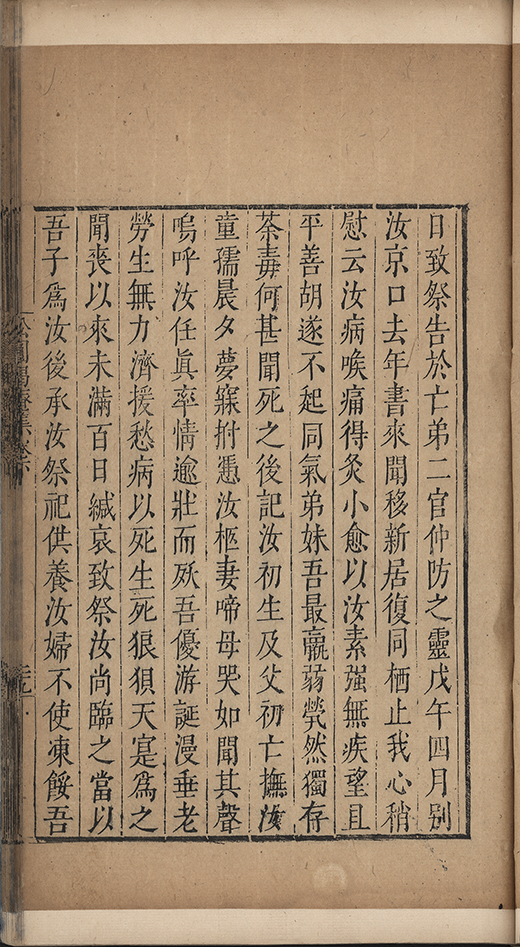 日致祭告於亡弟二官仲防之靈戊午四月别
汝京口去年書來聞移新居復同栖止我心稍
慰云汝病喉痛得灸小愈以汝素强無疾望且
平善胡遂不起同氣弟妹吾最羸弱煢然獨存
荼毒何甚聞死之後記汝初生及父初亡撫汝
童孺晨夕夢寐拊憑汝柩妻啼母哭如聞其聲
嗚呼汝任眞率情逾壯而殀吾優游誕漫垂老
勞生無力濟援愁病以死生死狼狽天寔爲之
聞喪以來未滿百日緘哀致祭汝尚臨之當以
吾子爲汝後承汝祭祀供養汝婦不使凍餒吾